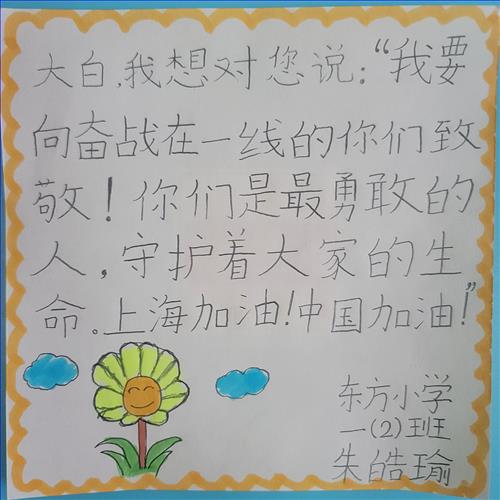 大白,我想对您说:“我要
向奋战在一线的你们致
敬!你们是最勇敢的
人,守护着大家的生
命。上海加油!中国加油!”
东方小学
一(2)班
朱皓瑜